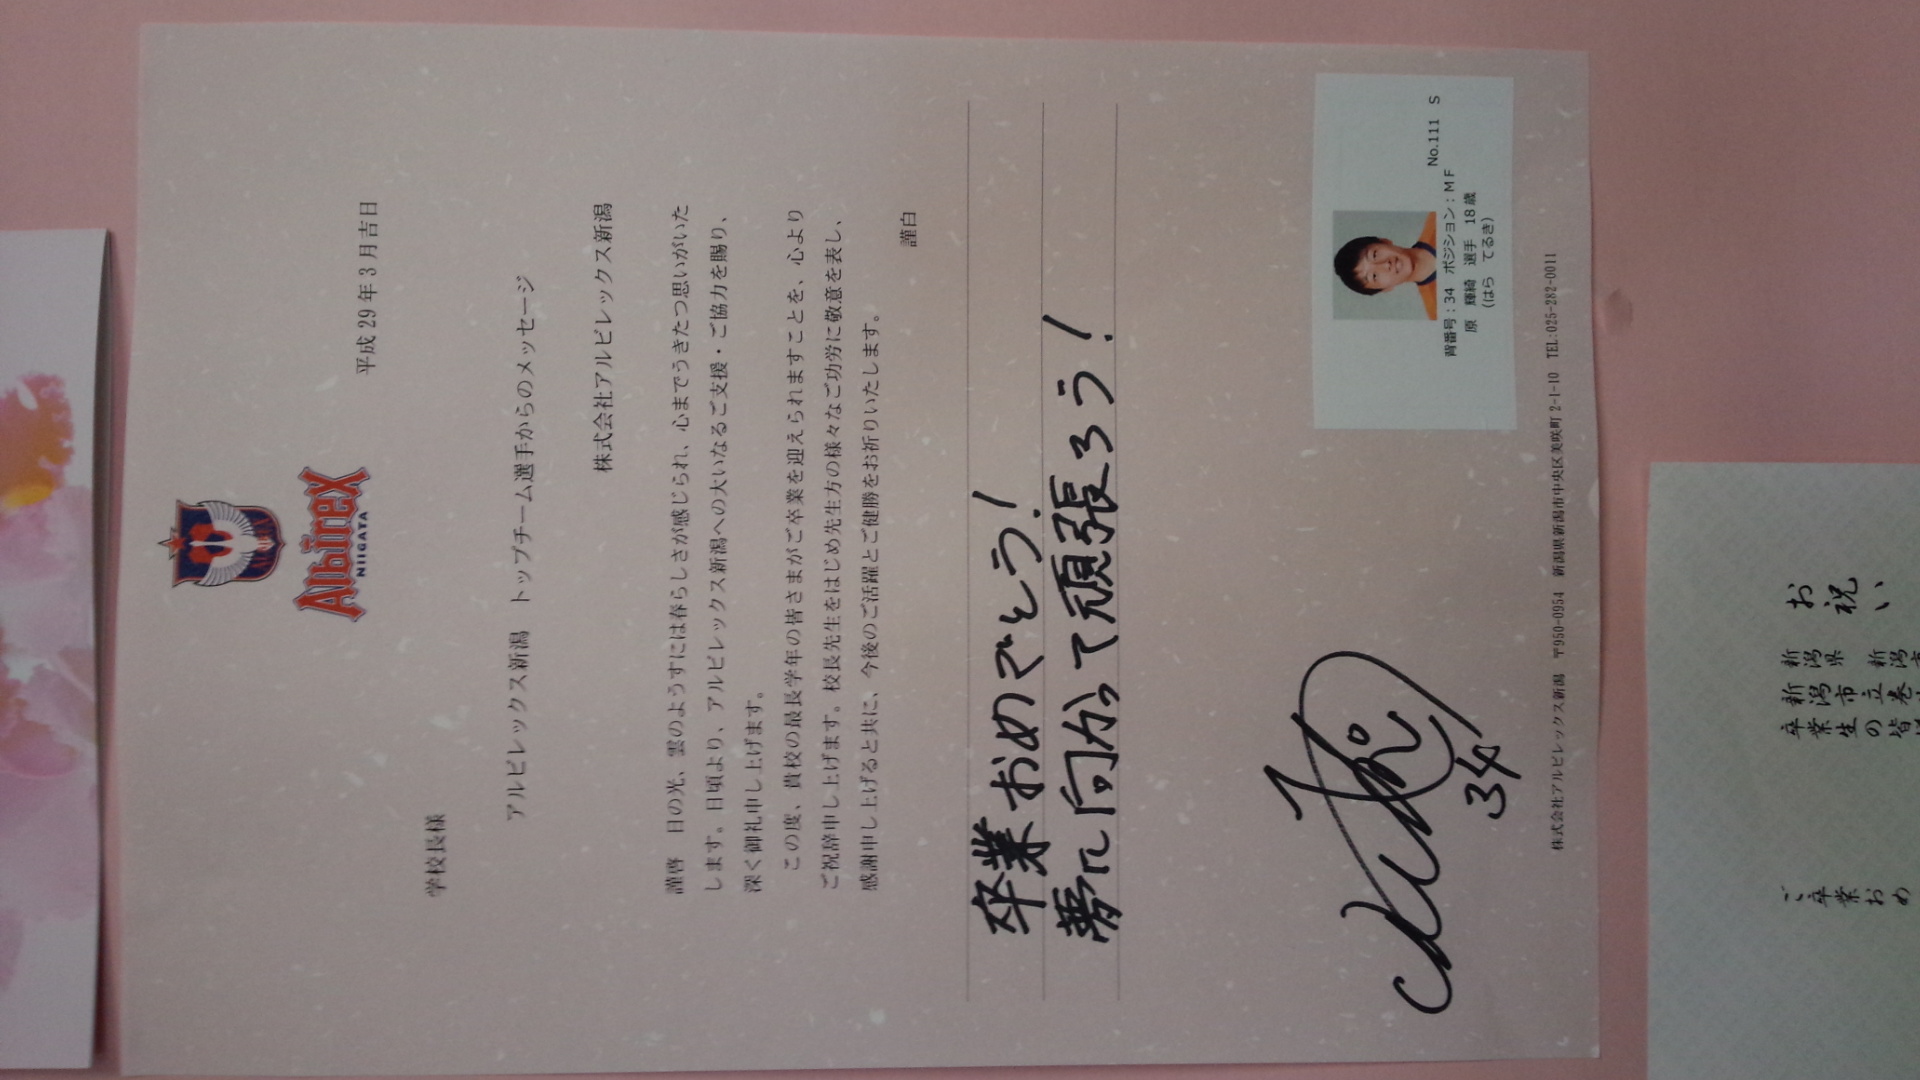 Albirex
NIIGATA
平成29年3月吉日
学校長様
アルビレックス新潟 トップチーム選手からのメッセージ
株式会社アルビレックス新潟
謹啓 日の光、雲のようすには春らしさが感じられ、心までうきたつ思いがいた
します。日頃より、アルビレックス新潟への大いなるご支援・ご協力を賜り、
深く御礼申し上げます。
この度、貴校の最長学年の皆さまがご卒業を迎えられますことを、心より
ご祝辞申し上げます。校長先生をはじめ先生方の様々なご功労に敬意を表し、
感謝申し上げると共に、今後のご活躍とご健勝をお祈りいたします。
謹白
卒業おめでとう!
夢に向かって頑張ろう!
34
No.111 S
背番号:34 ポジション:MF
原 輝綺 選手 18歳
(はら てるき)
株式会社アルビレックス新潟 〒950-0954 新潟県新潟市中央区美咲町2-1-10 TEL:025-282-0011
お祝い
新潟県
新潟市立巻
卒業生の皆
ご卒業おめ